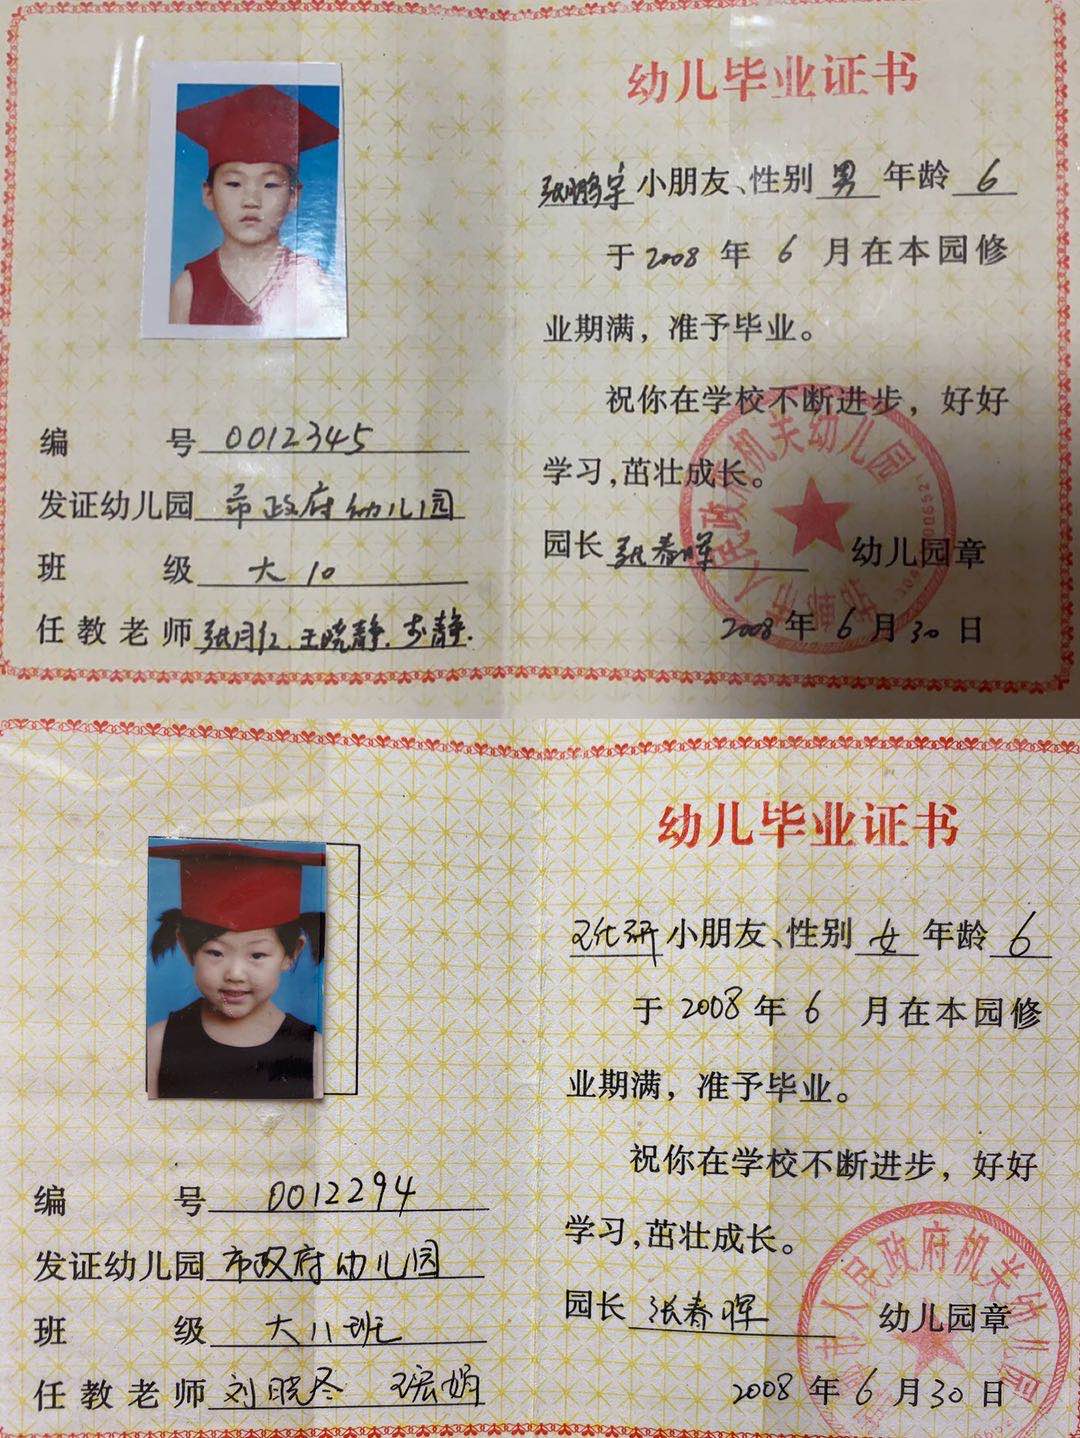 幼儿毕业证书
张鹏宇小朋友、性别 男 年龄 6
于 2008 年 6 月在本园修
业期满，准予毕业。
祝你在学校不断进步，好好
学习，茁壮成长。
园长 张春晖 幼儿园章
2008 年 6 月 30 日
编 号 0012345
发证幼儿园 市政府幼儿园
班 级 大 10
任教老师 王晓静.
市人民政府机关幼儿园
幼儿毕业证书
小朋友、性别 女 年龄 6
于 2008 年 6 月在本园修
业期满，准予毕业。
祝你在学校不断进步，好好
学习，茁壮成长。
园长 张春晖 幼儿园章
2008 年 6 月 30 日
编 号 0012294
发证幼儿园 市政府幼儿园
班 级 大八班
任教老师 刘晓冬
市人民政府机关幼儿园